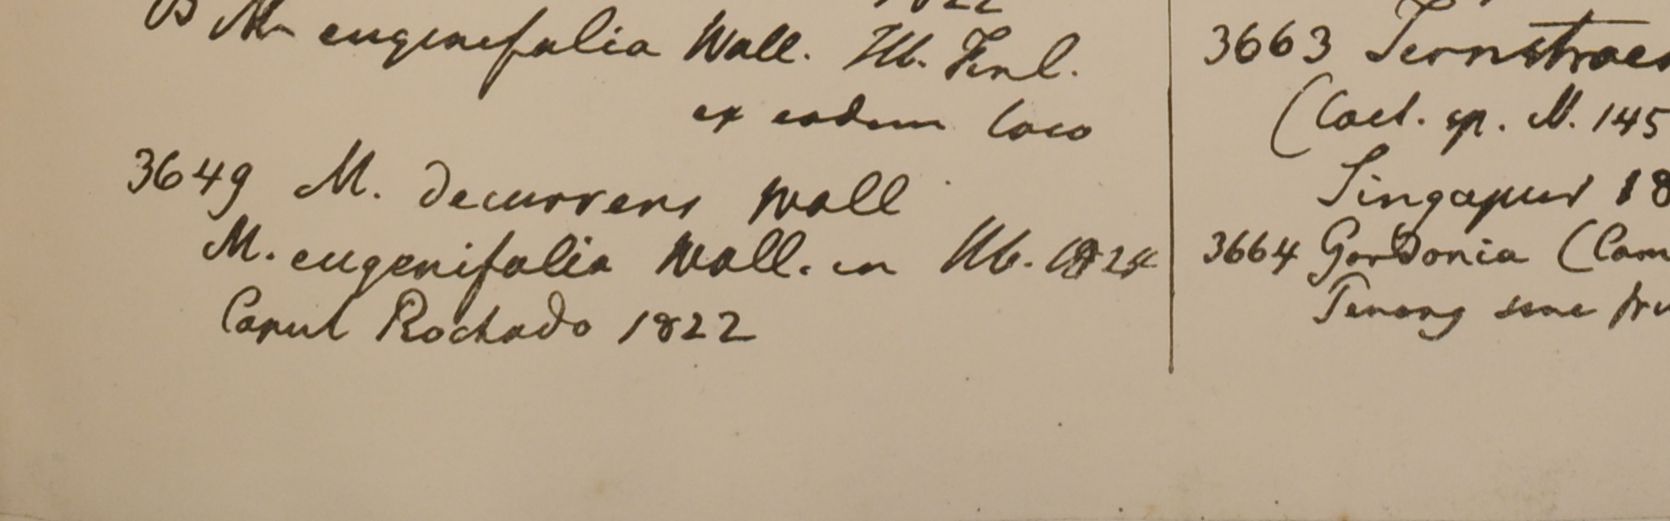 B M. eugenifolia Wall. Hb. Finl.
ex eodem loco
3649 M. decurrens Wall
M. eugenifolia Wall. in Hb. 1824
Caput Rochado 1822
3663 Ternstroe
(Cael. sp. N. 145
Singapur 18
3664 Gordonia (Cam
Penang sine fru